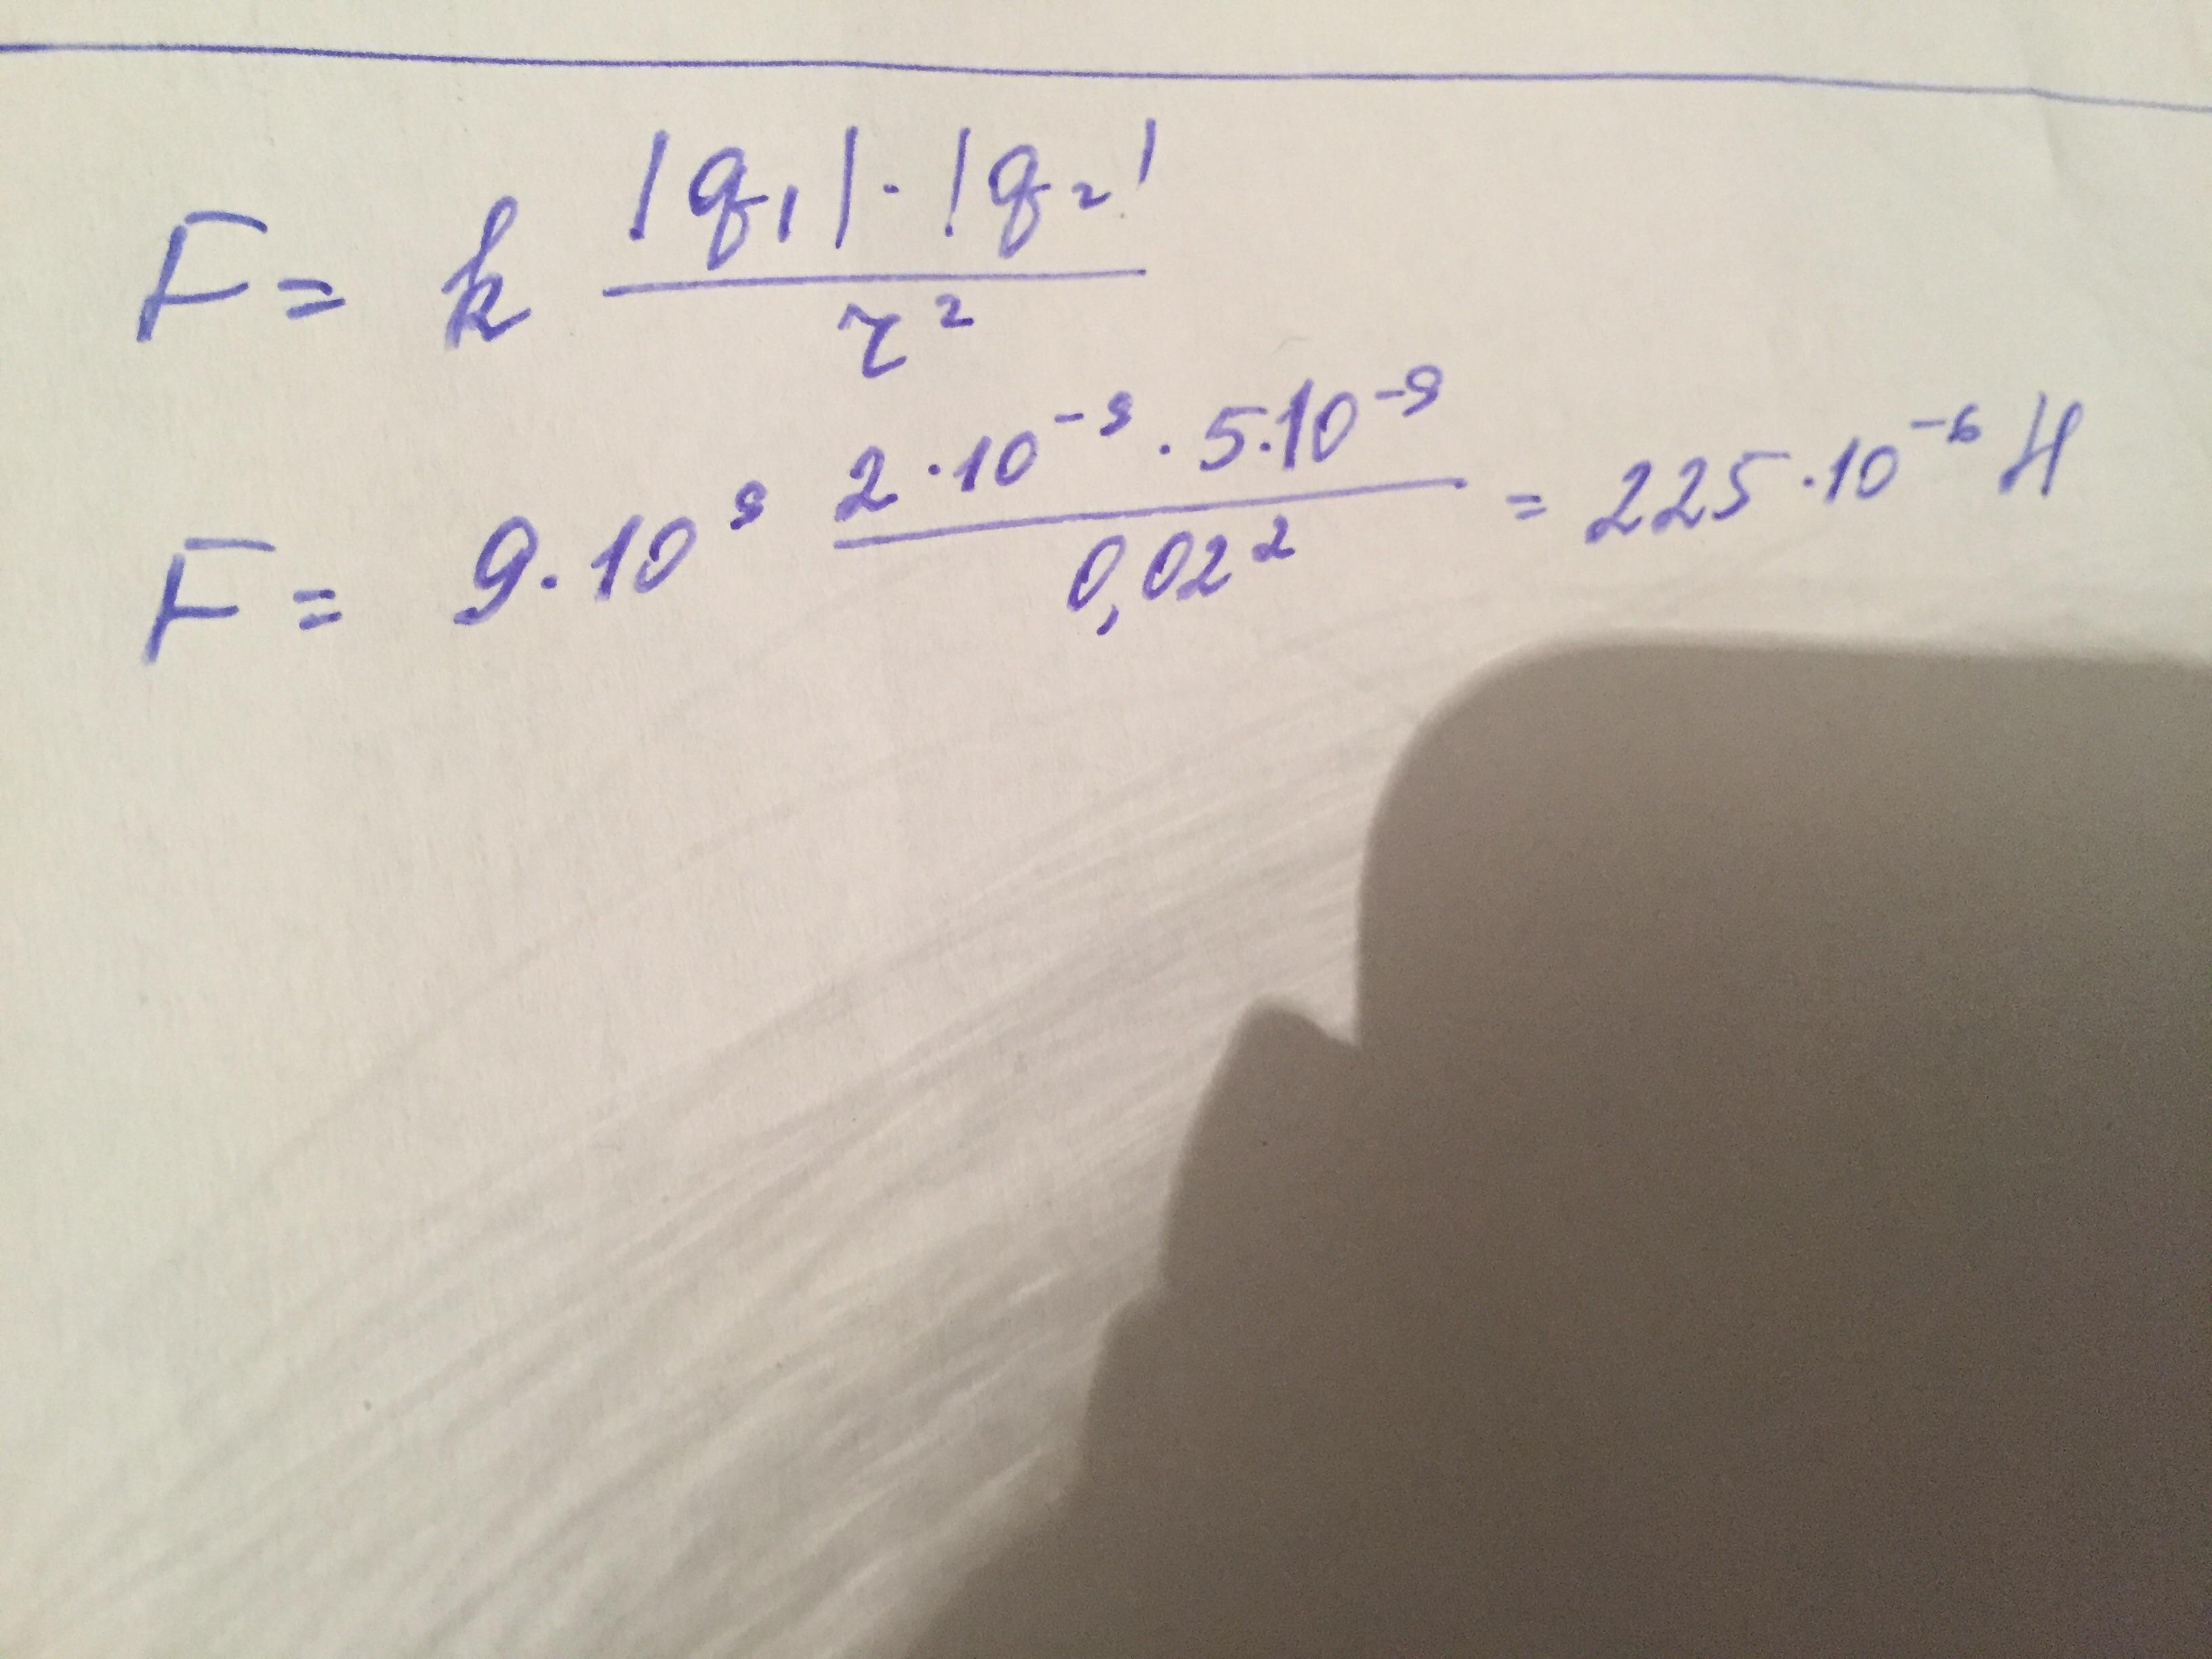 F = k |q₁| · |q₂| / r²
F = 9·10⁹ 2·10⁻⁹ · 5·10⁻⁹ / 0,02² = 225·10⁻⁶ Н